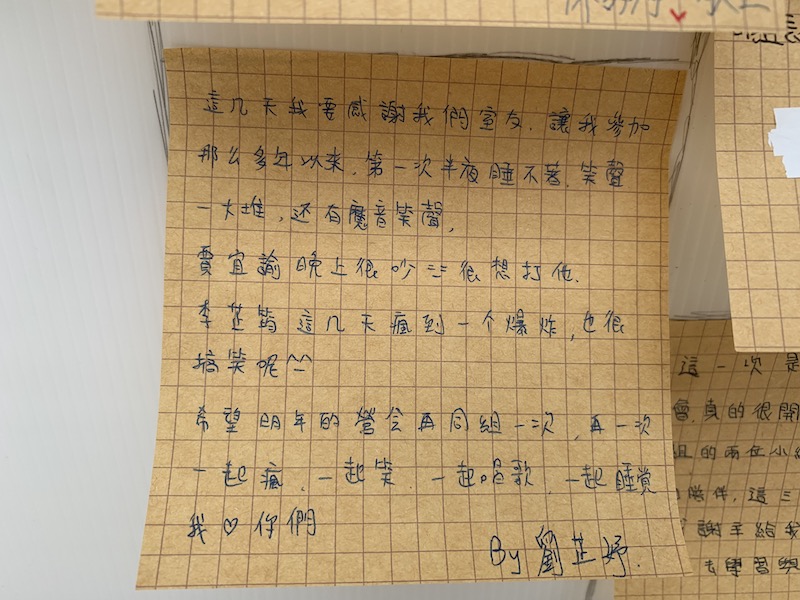 這几天我要感謝我們室友，讓我參加
那么多年以來，第一次半夜睡不著，笑聲
一大堆，还有魔音笑聲，
賈宜諭晚上很吵==很想打他、
李芷筠這几天瘋到一个爆炸，也很
搞笑呢^^
希望明年的營会再同組一次，再一次
一起瘋、一起笑、一起唱歌、一起睡觉
我♡你們
By 劉芷妤.
這一次是
會,真的很開
組的兩位小組
夥伴，這三
謝主給我
去學習與